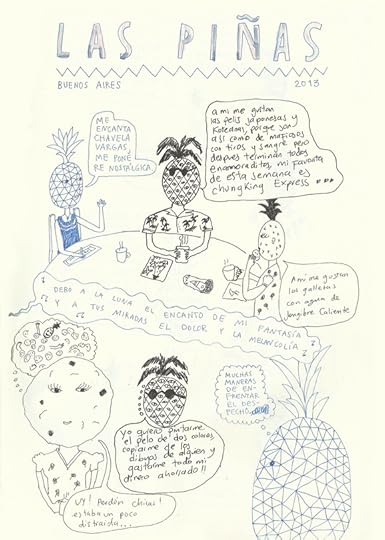 LAS PIÑAS
BUENOS AIRES
2013
ME
ENCANTA
CHAVELA
VARGAS,
ME PONE
RE NOSTÁLGICA.
a mi me gustan
las pelis japonesas y
Koreanas, porque son
asi como de mafiosos
con tiros y sangre pero
despues terminan todos
enamoraditos, mi favorita
de esta semana es
chungking Express ...
A mi me gustan
las galletas
con agua de
Jengibre Caliente
DEBO A LA LUNA EL ENCANTO DE MI FANTASÍA
Y A TUS MIRADAS EL DOLOR Y LA MELANCOLÍA
yo quiero pintarme
el pelo de dos colores,
copiarme de los
dibujos de alguien y
gastarme todo mi
dinero ahorrado!!
MUCHAS
MANERAS
DE EN-
FRENTAR
EL DES-
PECHO,
UY! Perdón chicas!
estaba un poco
distraída...